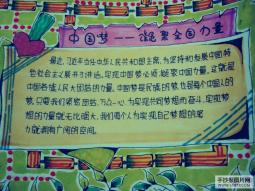 中国梦——凝聚全国力量
最近，习近平当选中华人民共和国主席，为坚持和发展中国特
色社会主义展开了讲话。实现中国梦必须凝聚中国力量。这就是
中国各族人民大团结的力量。中国梦是民族的梦，也是每个中国人的
梦。只要我们紧密团结，万众一心，为实现共同梦想而奋斗，实现梦
想的力量就无比强大，我们每个人为实现自己梦想的努
力就拥有广阔的空间。